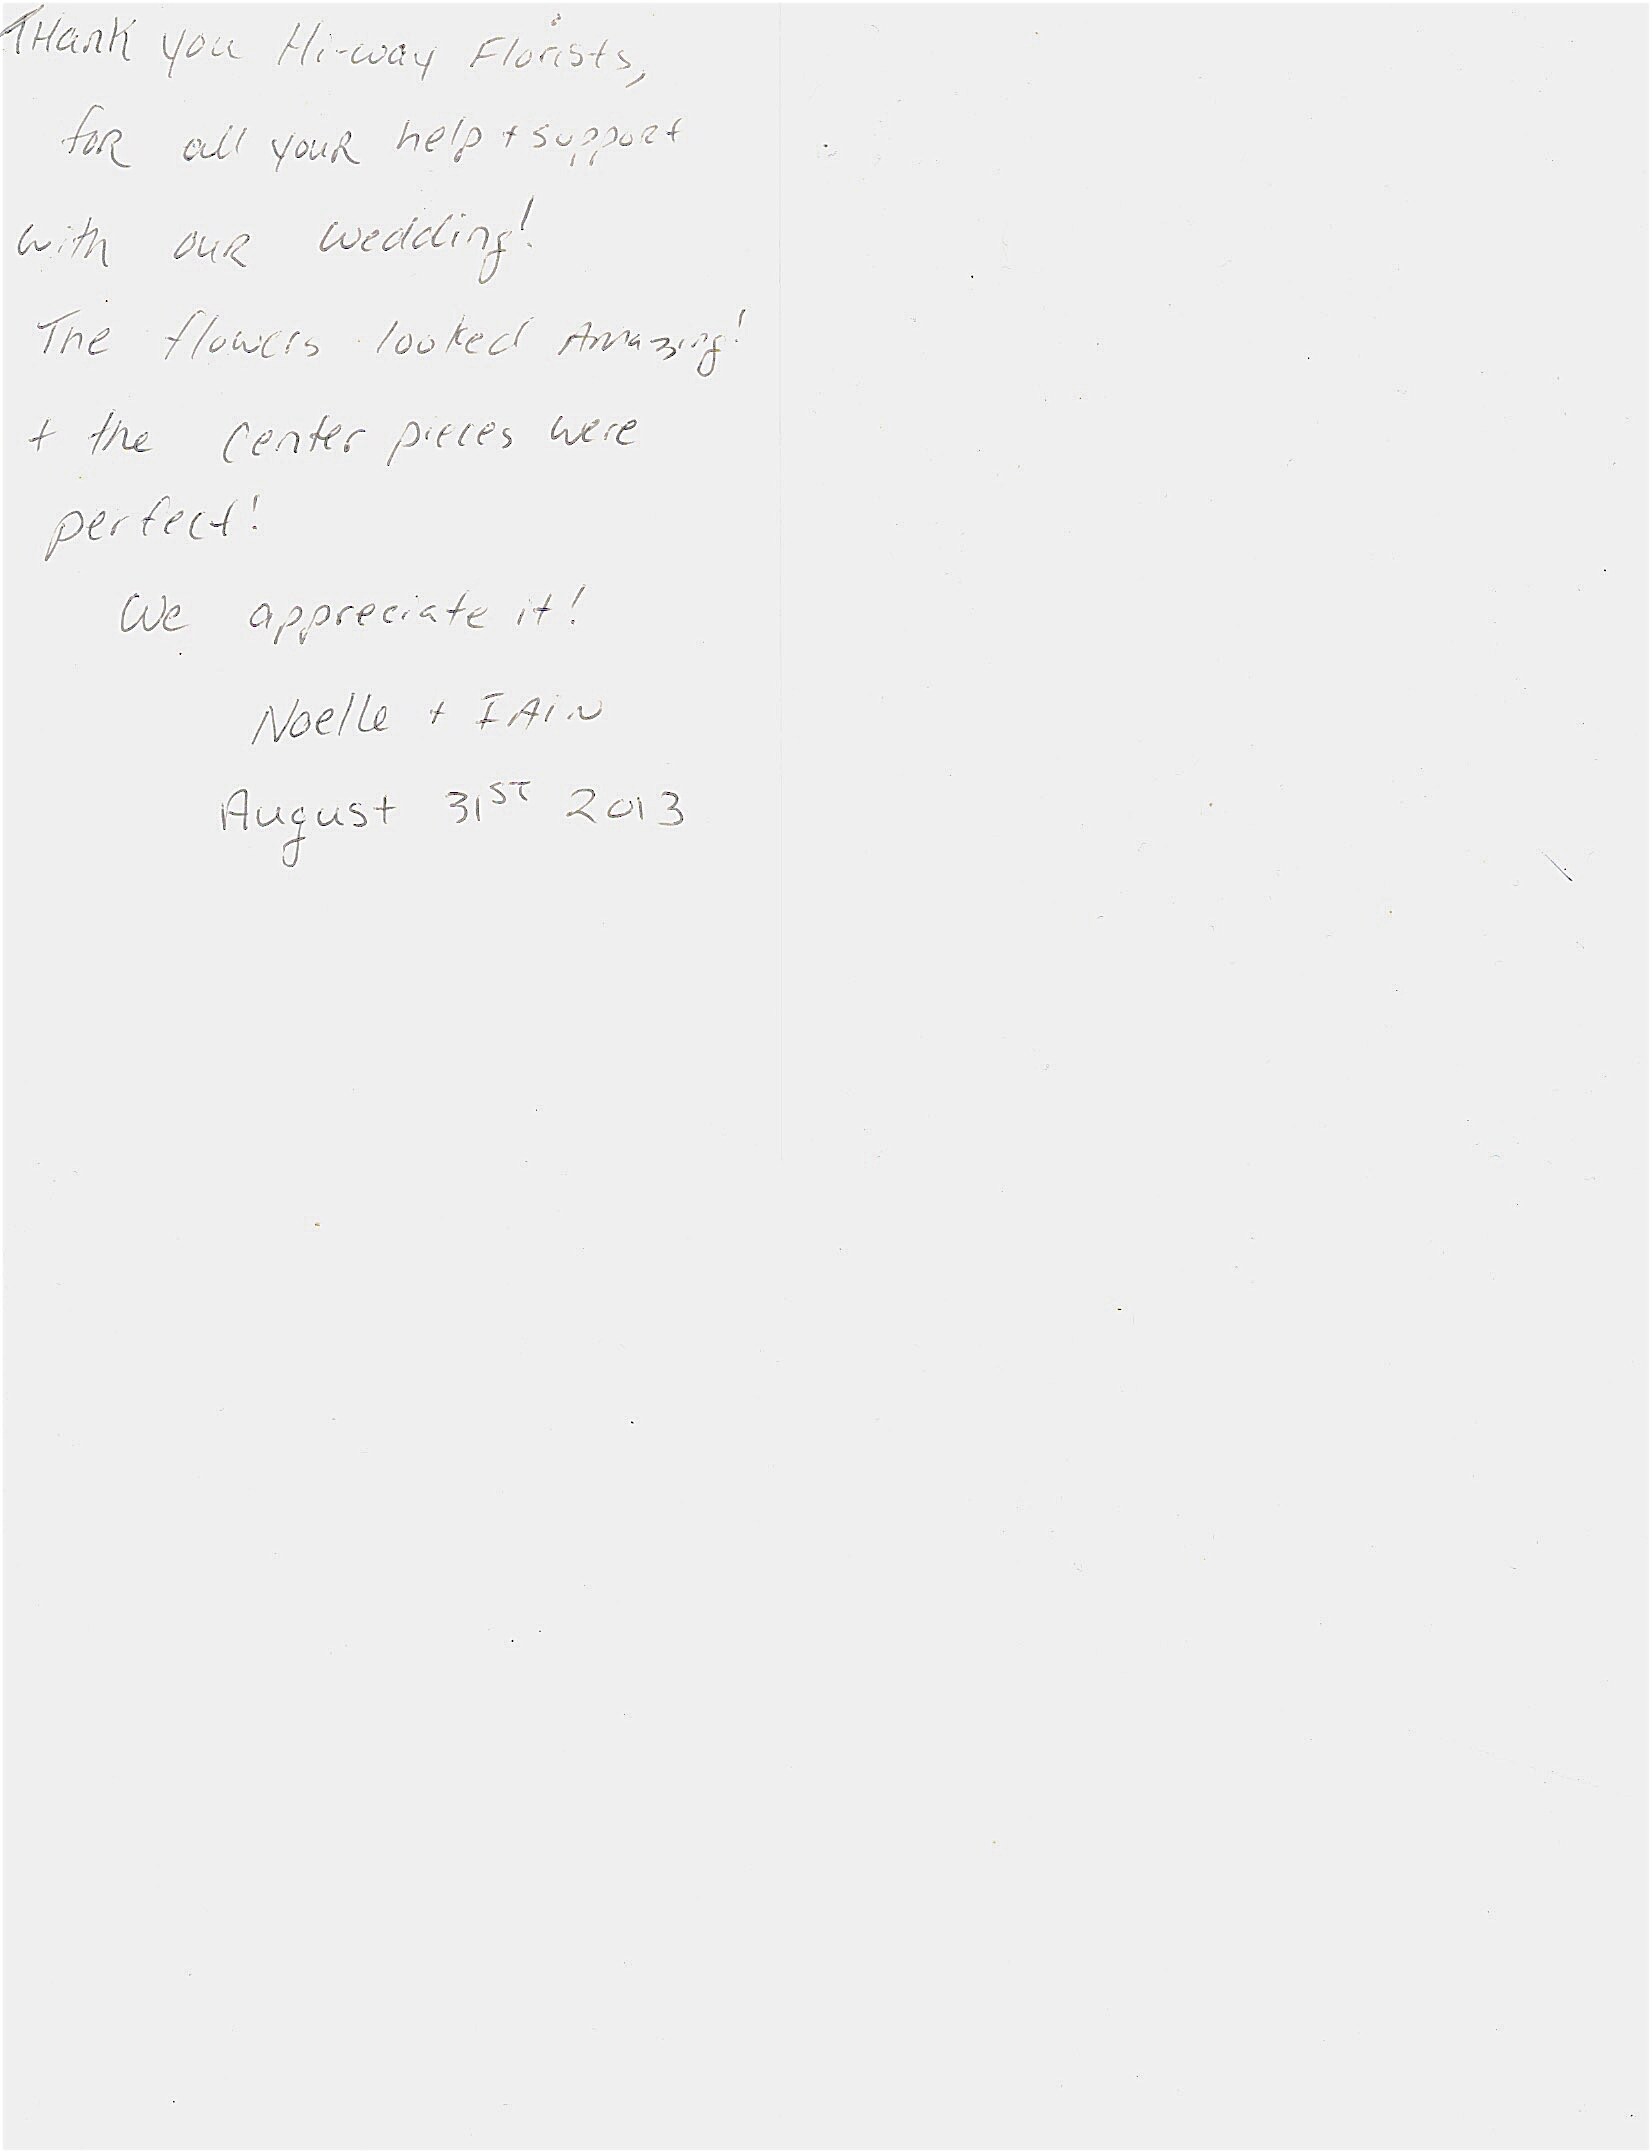 THank you Hi-way Florists,
foR all youR help + suppoRt
with ouR wedding!
The flowers looked Amazing!
+ the center pieces were
perfect!
We appreciate it!
Noelle + IAiN
August 31ST 2013